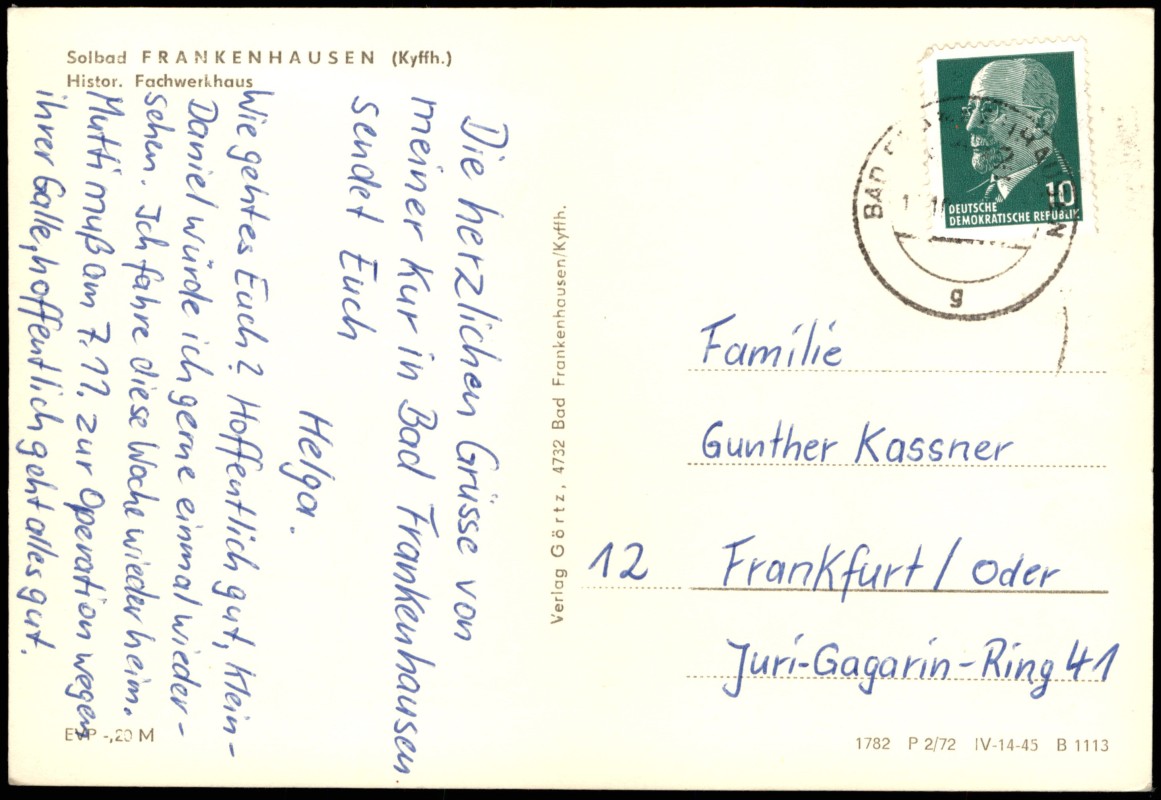 Solbad FRANKENHAUSEN (Kyffh.)
Histor. Fachwerkhaus
Die herzlichen Grüsse von
meiner Kur in Bad Frankenhausen
sendet Euch
Helga.
Wie geht es Euch? Hoffentlich gut, Klein-
Daniel würde ich gerne einmal wieder-
sehen. Ich fahre diese Woche wieder heim.
Mutti muß am 7.11. zur Operation wegen
ihrer Galle, hoffentlich geht alles gut.
EVP -,20 M
Verlag Görtz, 4732 Bad Frankenhausen/Kyffh.
10
DEUTSCHE
DEMOKRATISCHE REPUBLIK
BAD
g
Familie
Gunther Kassner
12 Frankfurt / Oder
Juri-Gagarin-Ring 41
1782 P 2/72 IV-14-45 B 1113